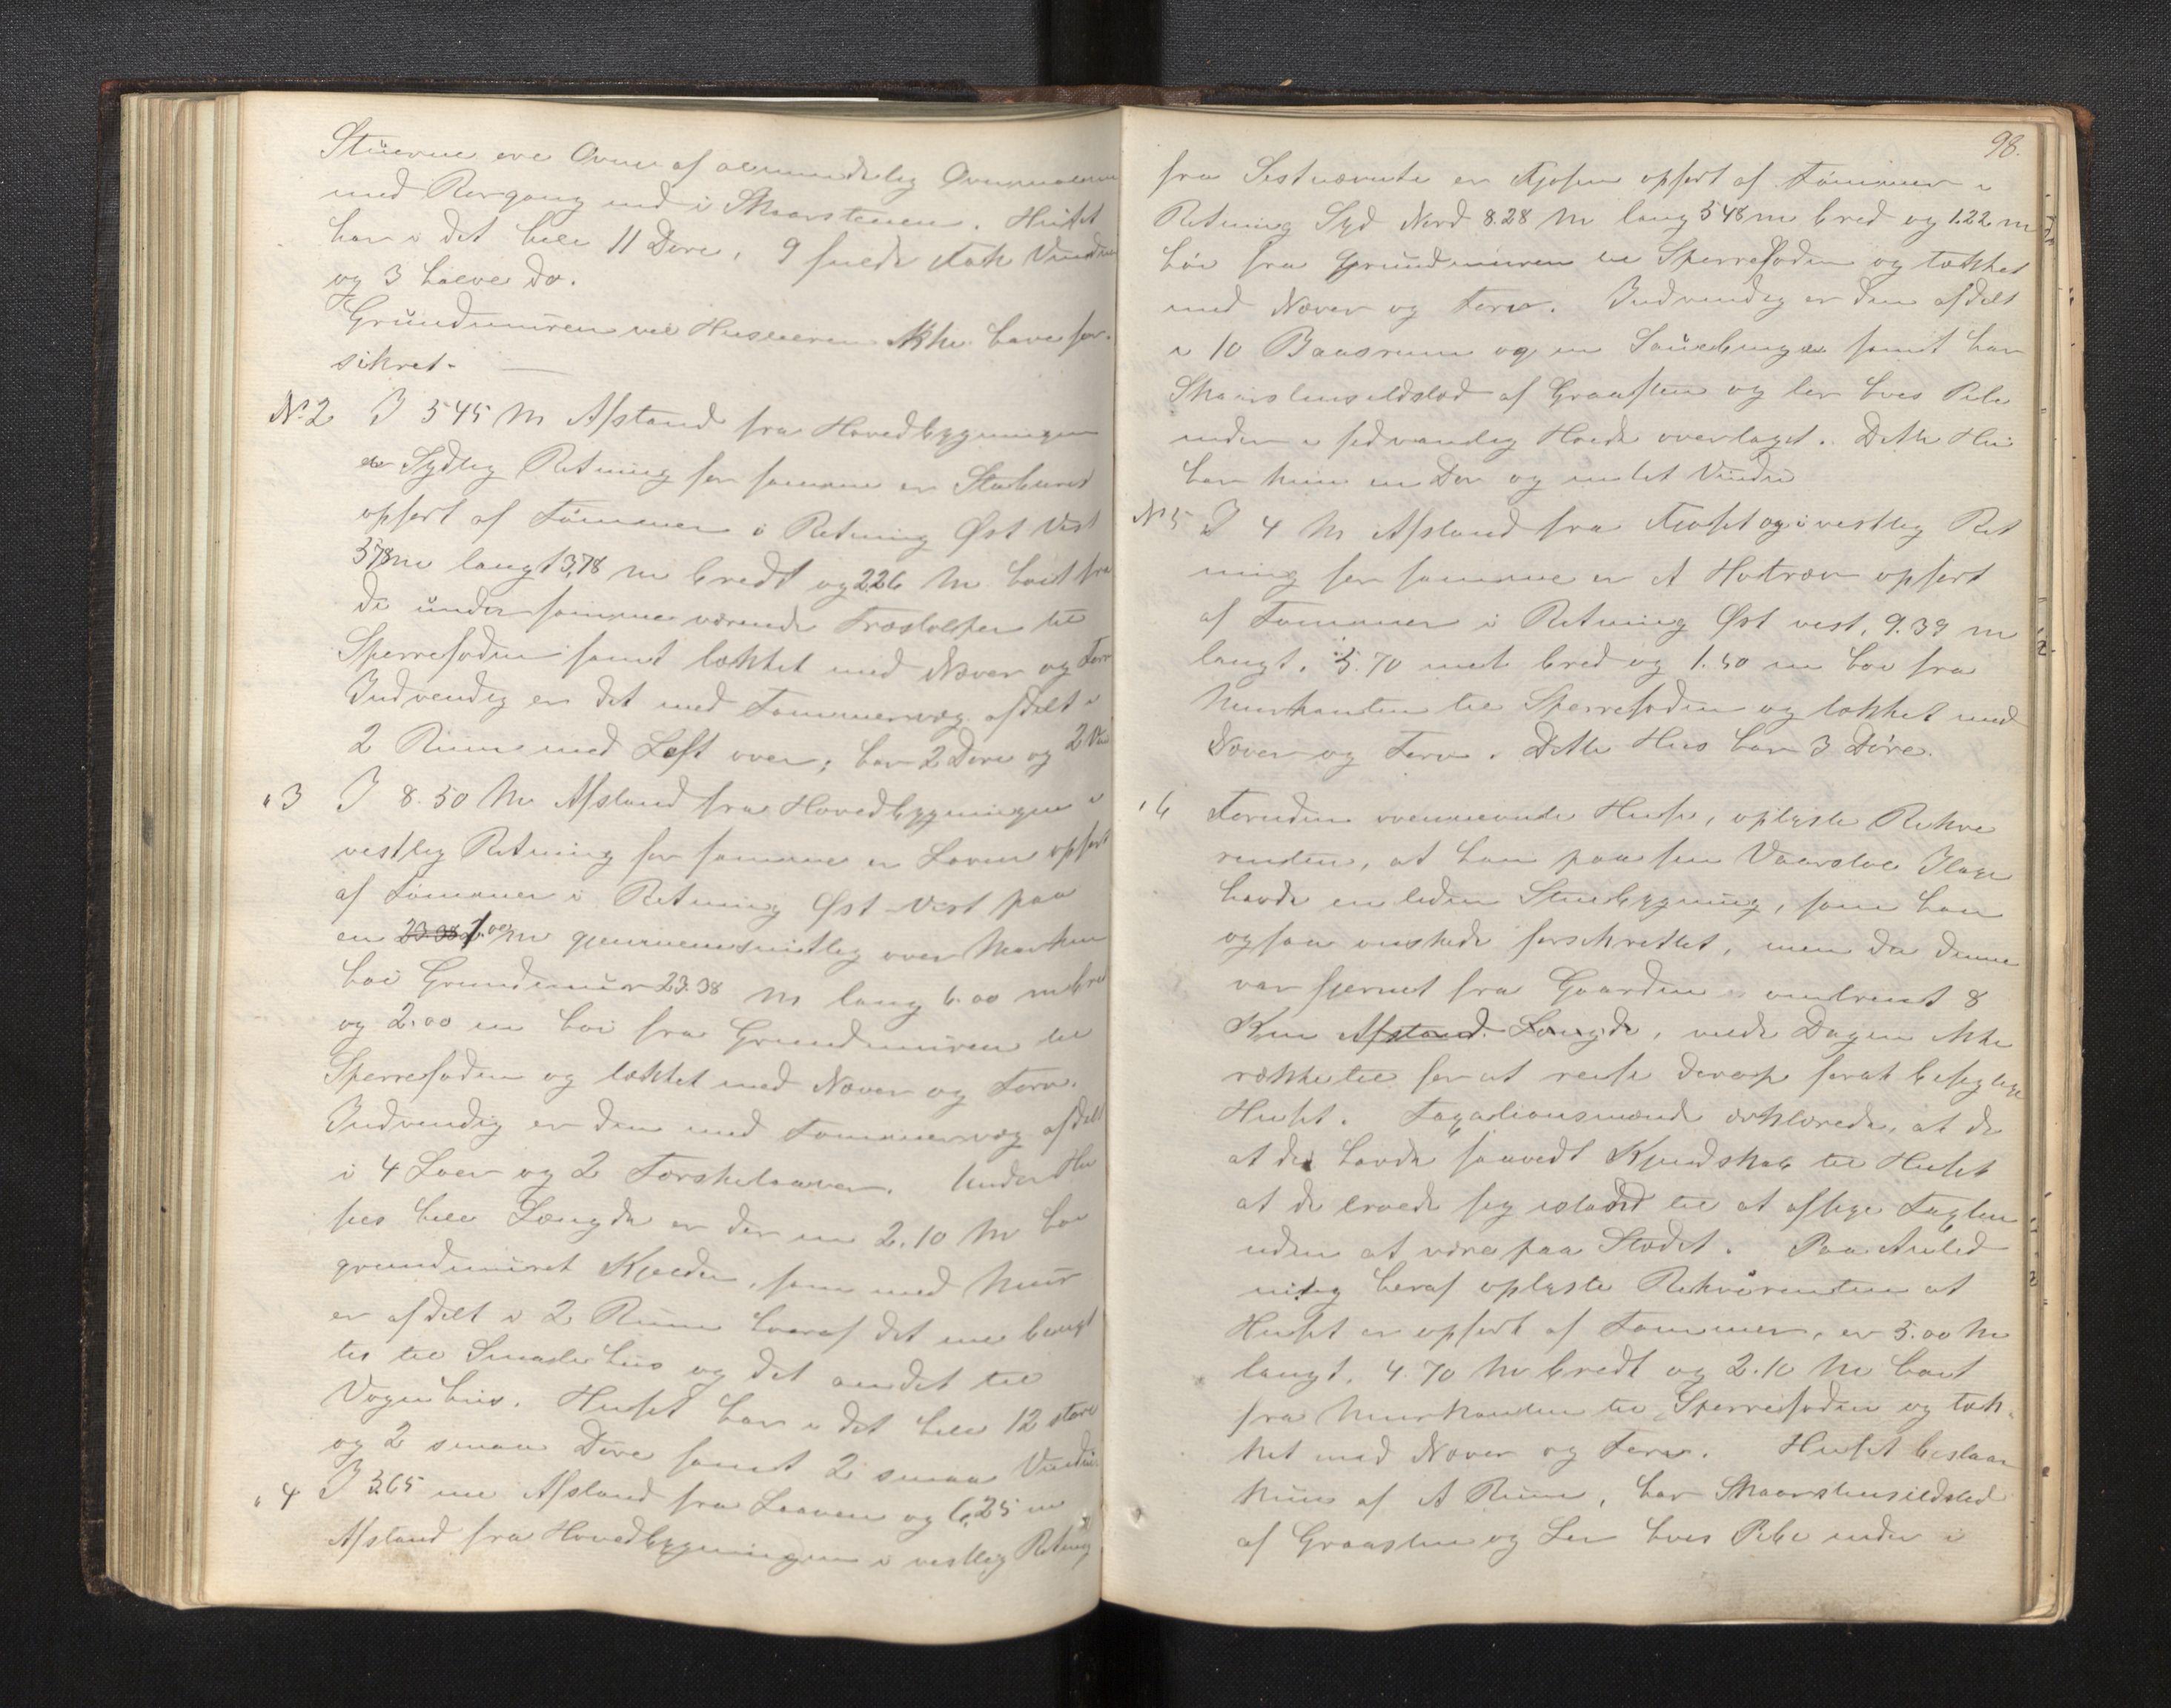 Stuerne ere Ovne af almindelig
med Rørgang ind i Skaarstenen. Huset
har i det hele 11 Døre, 9 fulde Fak Vinduer
og 3 halve Do.
Grundmuren vil Huseieren ikke have for-
sikret. —
No 2 I 5 45 M Afstand fra Hovedbygningen
Sydlig Retning for samme er Stabburet
opført af Tømmer i Retning Øst Vest
5,78 m langt 3,78 m bredt og 2.26 M høit fra
de under samme værende Træstolper til
Sperrefoden samt tækket med Næver og Torv
Indvendig er det med Tømmervæg afdelt i
2 Rum med Loft over; har 2 Døre og 2
" 3 I 8.50 M Afstand fra Hovedbygningen i
vestlig Retning for samme er Loven opført
af Tømmer i Retning Øst-Vest paa
en 23.38 1.00 m gjennemsnitlig over Marken
høi Grundmur 23.38 m lang 6.00 m bred
og 2.00 m høi fra Grundmuren til
Sperrefoden og tækket med Næver og Torv.
Indvendig er den med Tømmervæg afdelt
i 4 Loer og 2 Tørskelaaver. Under Hu
ses hele Længde er der en 2.10 M høi
grundmuret Kjelder, som med Mur
er afdelt i 2 Rum hvoraf det ene benyt
tes til Smalehus og det andet til
Vognhus. Huset har i det hele 12 store
og 2 smaa Døre samt 2 smaa Vinduer
" 4 I 3.65 m Afstand fra Laaven og 6,25 m
Afstand fra Hovedbygningen i vestlig Retning
98.
fra Sistnævnte er Fjøsen opført af Tømmer i
Retning Syd Nord 8.28 M lang 5 48 m bred og 1.22 m
høi fra Grundmuren til Sperrefoden og tækket
med Næver og Torv. Indvendig er den afdelt
i 10 Baasrum og en Sauebinge samt har
Skaarstensildsted af Graasten og ler hvis Pibe
under i sedvanlig Høide overtaget. Dette Hus
har kun en Dør og intet Vindu
No 5 I 4 M Afstand fra Fjøset og i vestlig Ret
ning for samme er et opført
af Tømmer i Retning Øst vest, 9.39 m
langt, 5.70 met bred og 1.50 m høi fra
Murkanten til Sperrefoden og tækket med
Næver og Torv. Dette Hus har 3 Døre.
" 6 Foruden ovennævnte Huse, oplyste Rekvi
renten, at han paa sin Vaarstøl
havde en liden Stuebygning, som han
ogsaa ønskede forsikret, men da denne
var fjernet fra Gaarden omtrent 8
Km Afstand Længde, vilde Dagen ikke
række til for at reise derop forat besigtige
Huset. Taxationsmænd erklærede, at de
at de havde saavidt Kjendskab til Huset
at de troede sig istand til at aflegge Taxten
uden at være paa Stedet. Paa Anled
ning heraf oplyste Rekvirenten at
Huset er opført af Tømmer, er 5.00 M
langt, 4.70 M bredt og 2.10 M høit
fra Murkanten til Sperrefoden og tæk-
ket med Næver og Torv. Huset bestaar
kun af et Rum, har Skaarstensildsted
af Graasten og Ler hvis Pibe under i